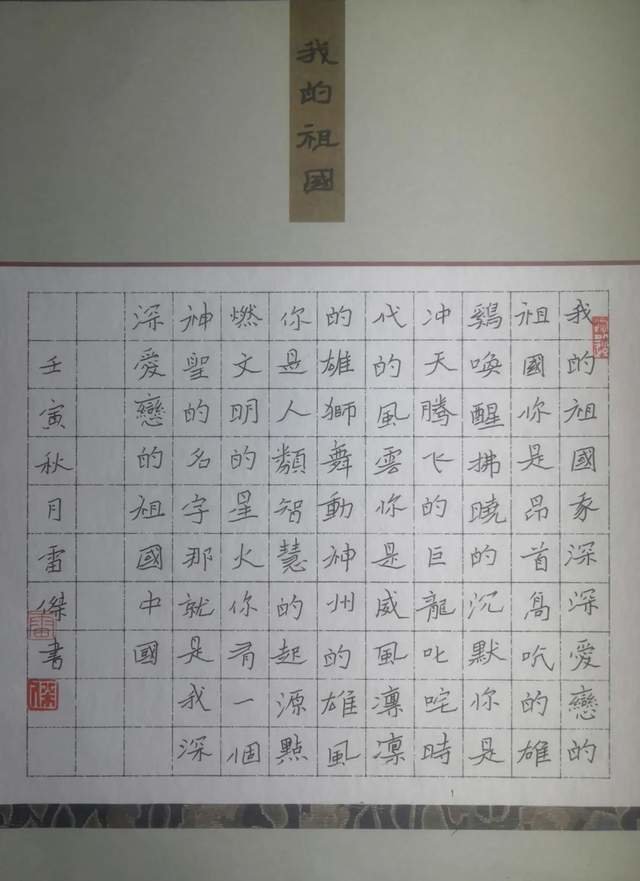 我的祖國
我的祖國深深愛戀的
祖國你是昂首高吭的雄
鷄喚醒拂曉的沉默你是
冲天騰飞的巨龍叱咤時
代的風雲你是威風凛凛
的雄獅舞動神州的雄風
你是人類智慧的起源點
燃文明的星火你有一個
神聖的名字那就是我深
深愛戀的祖國中國
壬寅秋月雷傑書
雷
傑
1